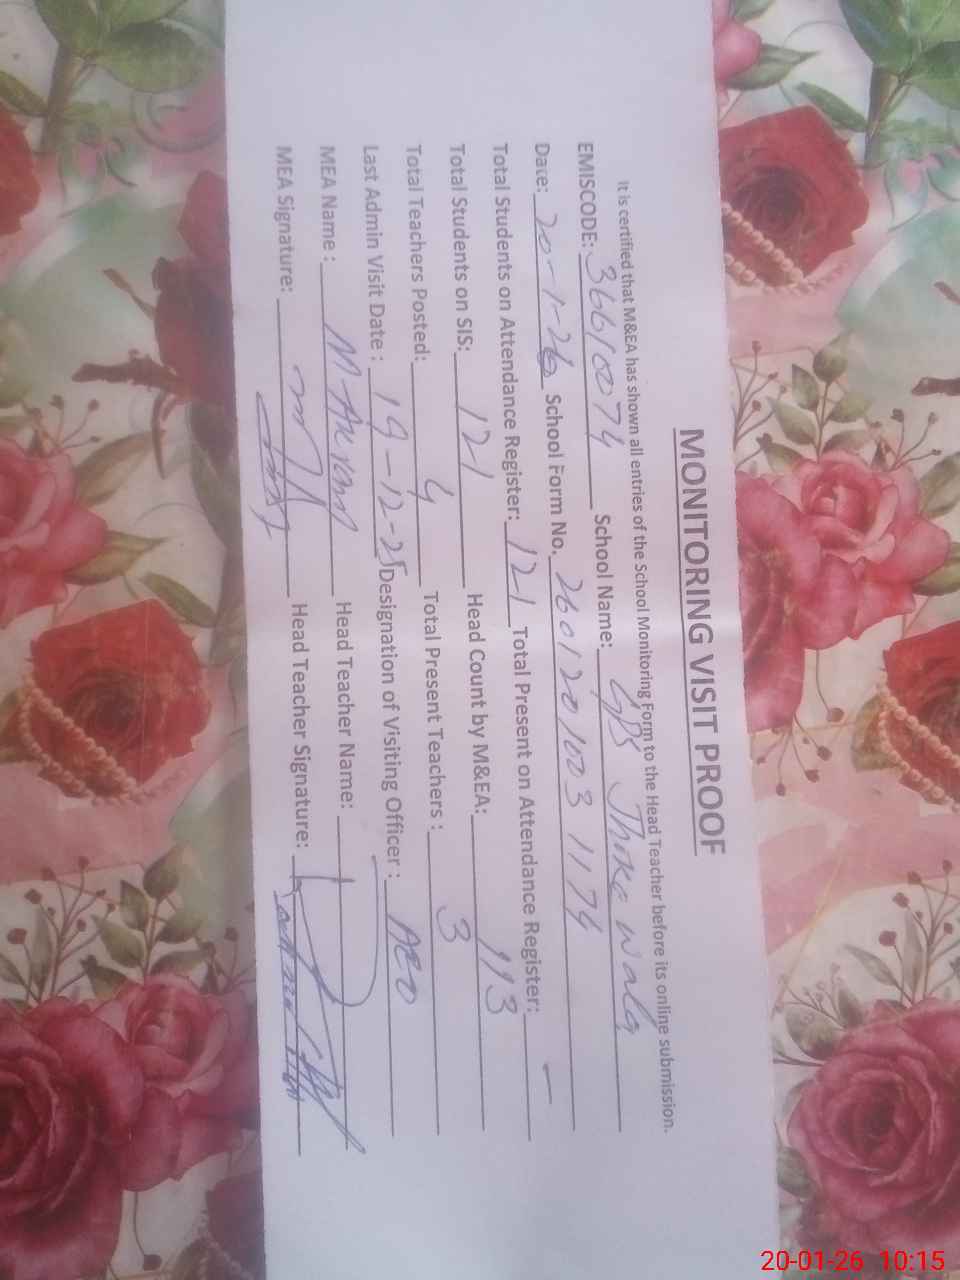 MONITORING VISIT PROOF
It is certified that M&EA has shown all entries of the School Monitoring Form to the Head Teacher before its online submission.
EMISCODE: 36610074 School Name: GPS Thoka wala
Date: 20-1-26 School Form No. 2601201003 1174
Total Students on Attendance Register: 121 Total Present on Attendance Register: —
Total Students on SIS: 121 Head Count by M&EA: 113
Total Teachers Posted: 4 Total Present Teachers : 3
Last Admin Visit Date : 19-12-25 Designation of Visiting Officer : AEO
MEA Name : M Akram Head Teacher Name:
MEA Signature: Head Teacher Signature:
20-01-26 10:15